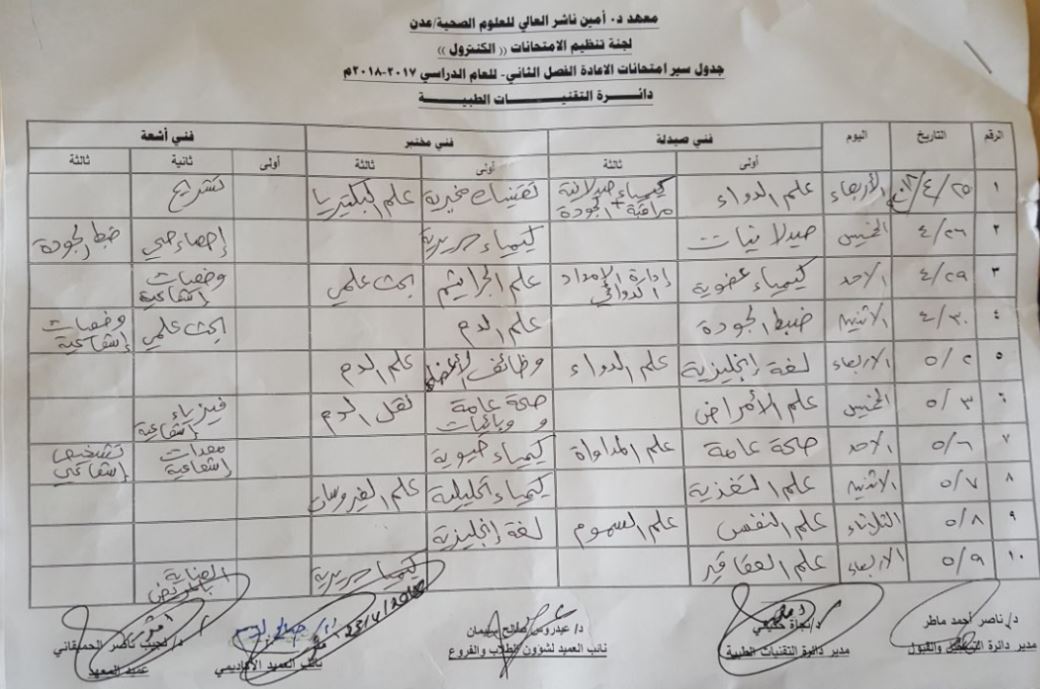 معهد د. أمين ناشر العالي للعلوم الصحية/عدن
لجنة تنظيم الامتحانات (( الكنترول ))
جدول سير امتحانات الاعادة الفصل الثاني- للعام الدراسي ٢٠١٧-٢٠١٨م
دائرة التقنيات الطبية
الرقم التاريخ اليوم فني صيدلة فني مختبر فني أشعة
أولى ثالثة أولى ثالثة أولى ثانية ثالثة
١ ٢٥/٤/ الأربعاء علم الدواء كيمياء صيدلانية + مراقبة الجودة تقنيات مخبرية علم البكتيريا تشريح
٢ ٤/٢٦ الخميس صيدلانيات كيمياء سريرية إحصاء صحي ضبط الجودة
٣ ٤/٢٩ الاحد كيمياء عضوية إدارة الإمداد الدوائي علم الجراثيم بحث علمي وضعيات إشعاعية
٤ ٤/٣٠ الاثنين ضبط الجودة علم الدم بحث علمي وضعيات إشعاعية
٥ ٥/٢ الاربعاء لغة إنجليزية علم الدواء وظائف الأعضاء علم الدم
٦ ٥/٣ الخميس علم الأمراض صحة عامة و وبائيات نقل الدم فيزياء إشعاعية
٧ ٥/٦ الاحد صحة عامة علم المداواة كيمياء حيوية معدات إشعاعية تشخيص إشعاعي
٨ ٥/٧ الاثنين علم التغذية كيمياء تحليلية علم الفيروسات
٩ ٥/٨ الثلاثاء علم النفس علم السموم لغة إنجليزية
١٠ ٥/٩ الاربعاء علم العقاقير كيمياء سريرية العناية بالمريض
23/4/2018
د/ ناصر أحمد ماطر د/ نجاة د/ عيدروس صالح سليمان د/ نجيب ناصر الحميقاني
مدير دائرة والقبول مدير دائرة التقنيات الطبية نائب العميد لشؤون الطلاب والفروع نائب العميد الأكاديمي عميد المعهد